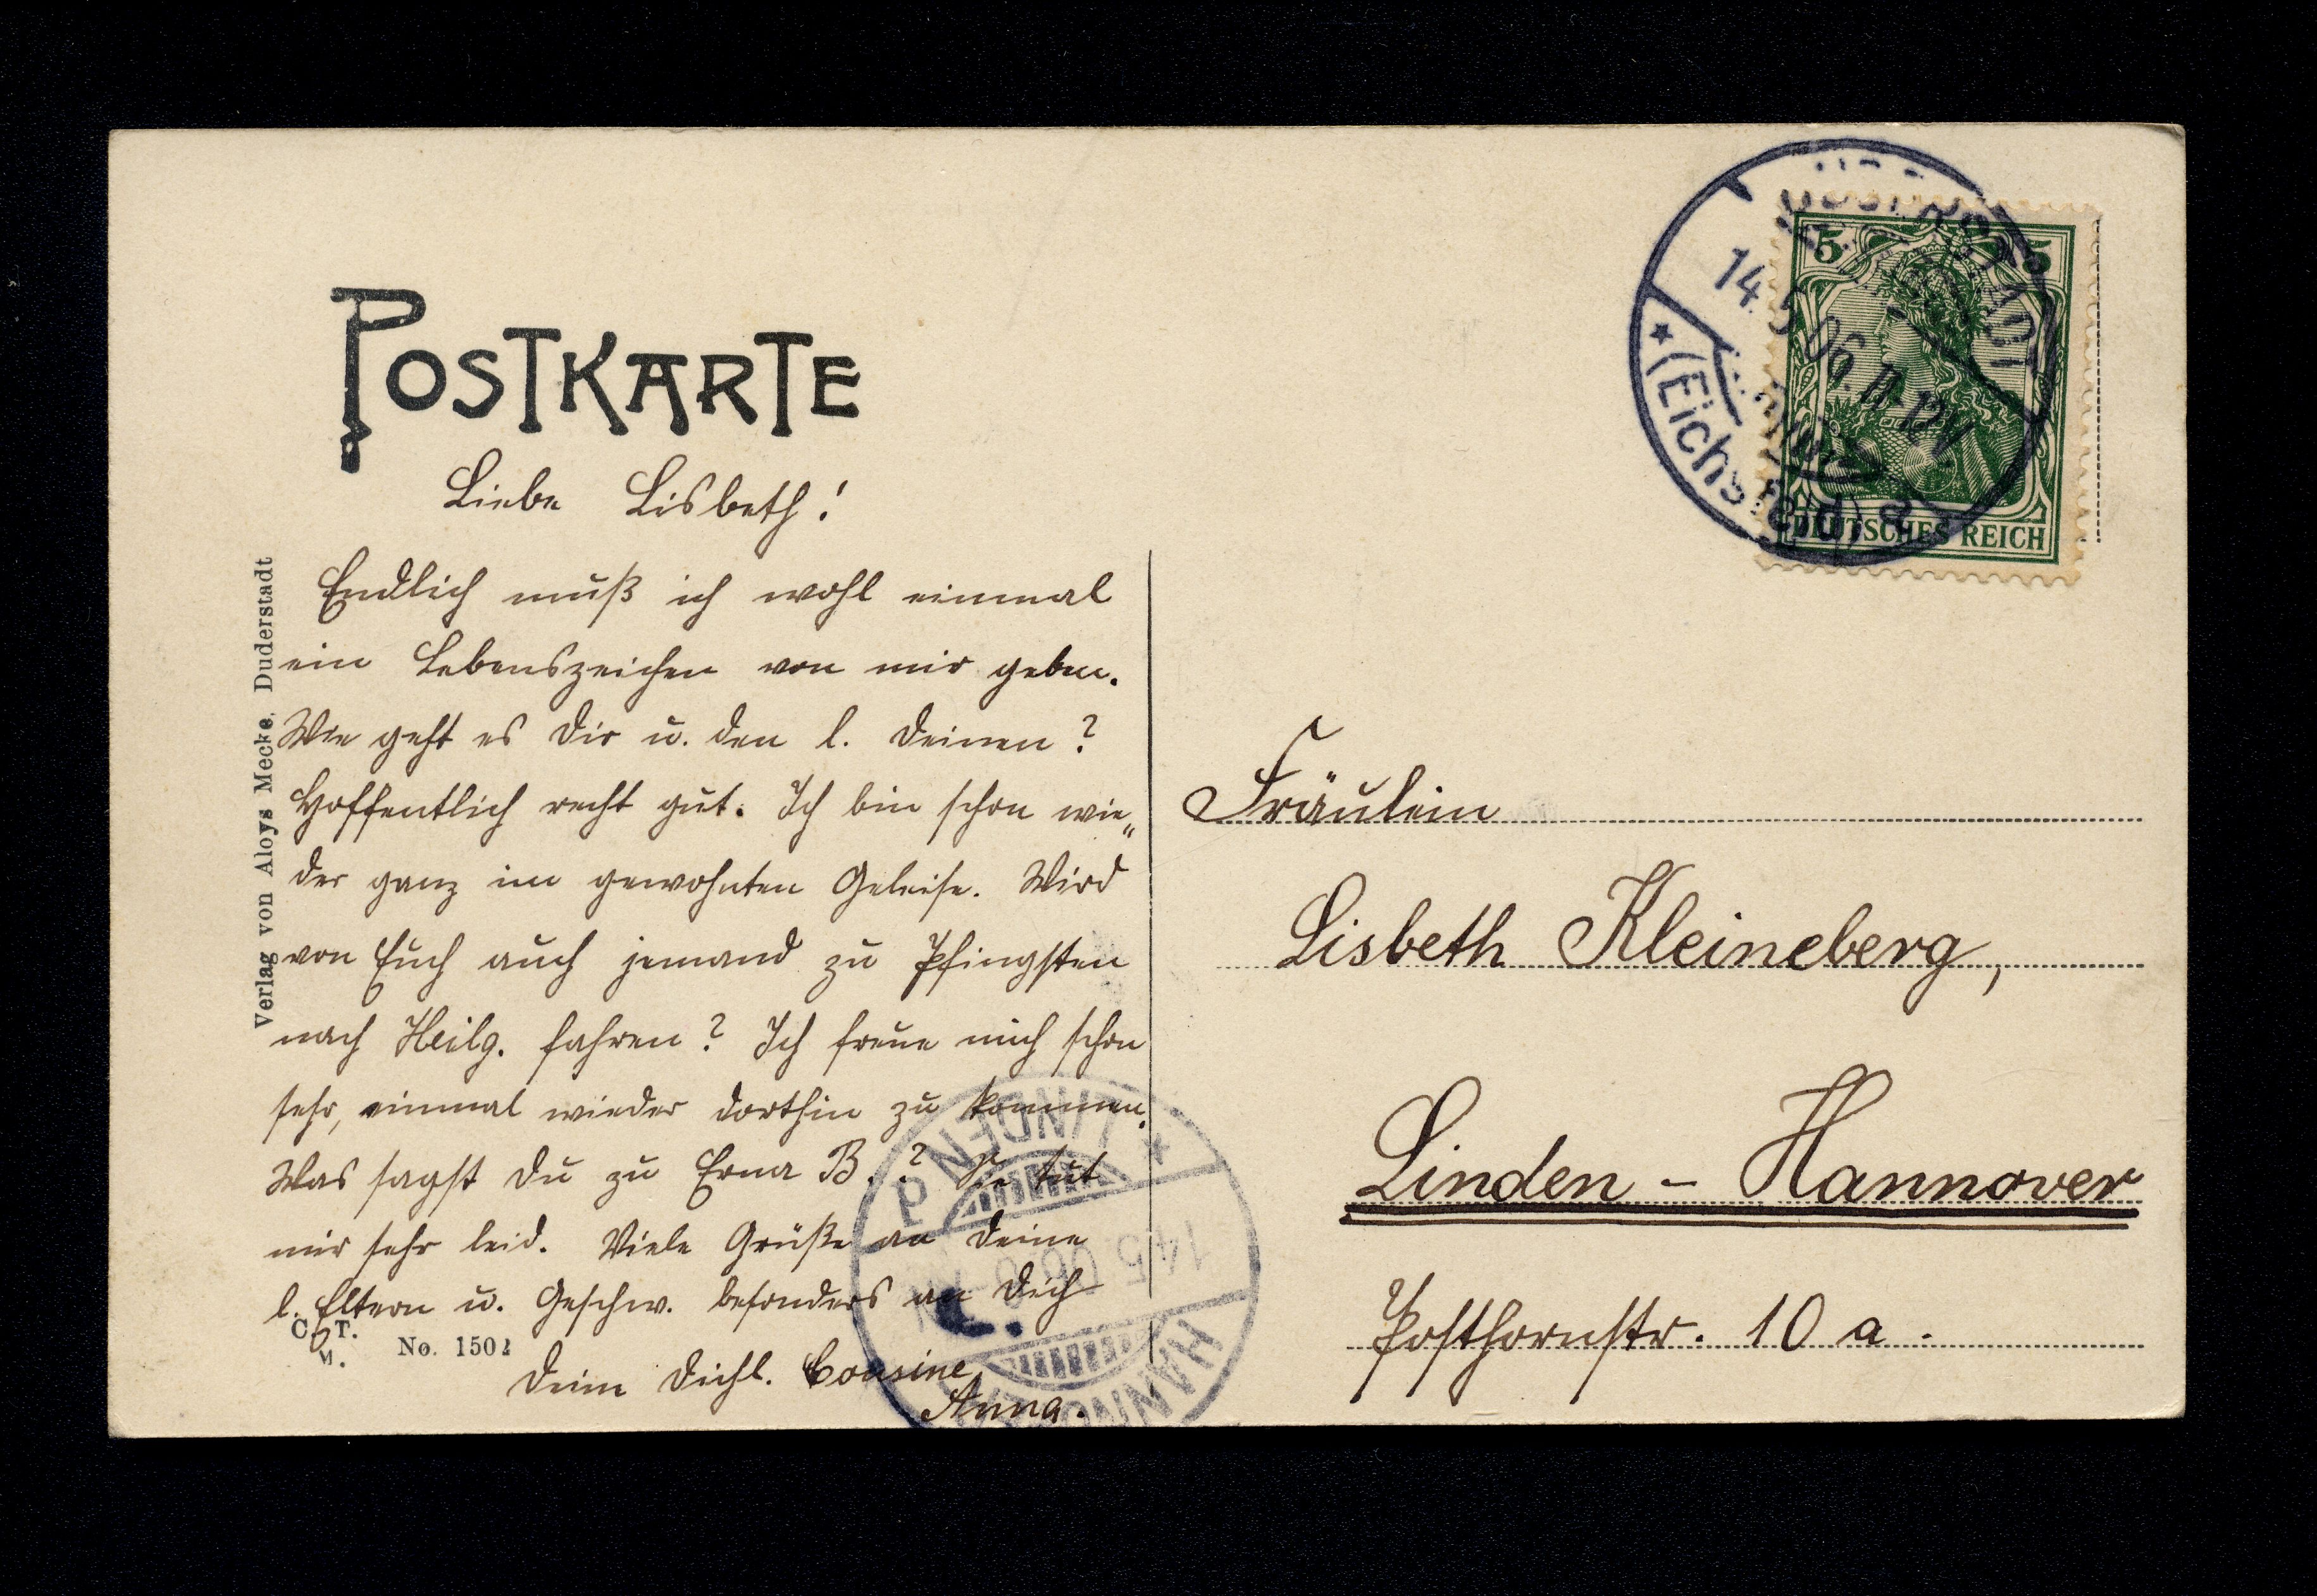 POSTKARTE
Liebe Lisbeth!
Endlich muß ich wohl einmal
ein Lebenszeichen von mir geben.
Wie geht es Dir u. den l. Deinen?
Hoffentlich recht gut. Ich bin schon wie„
der ganz im gewohnten Geleise. Wird
von Euch auch jemand zu Pfingsten
nach Heilg. fahren? Ich freue mich schon
sehr, einmal wieder dorthin zu kommen.
Was sagst Du zu Erna B..? Sie tut
mir sehr leid. Viele Grüße an Deine
l. Eltern u. Geschw. besonders an Dich
Deine Dichl. Cousine
Anna.
Verlag von Aloys Mecke, Duderstadt
C. T.
M.
No. 1502
DUDERSTADT
14.5.06. 11-12V.
* (Eichsfeld) a
5 5
DEUTSCHES REICH
Fräulein
Lisbeth Kleineberg,
Linden - Hannover
Posthornstr. 10 a.
* LINDEN d
14.5.06. 6-7N
HANNOVER